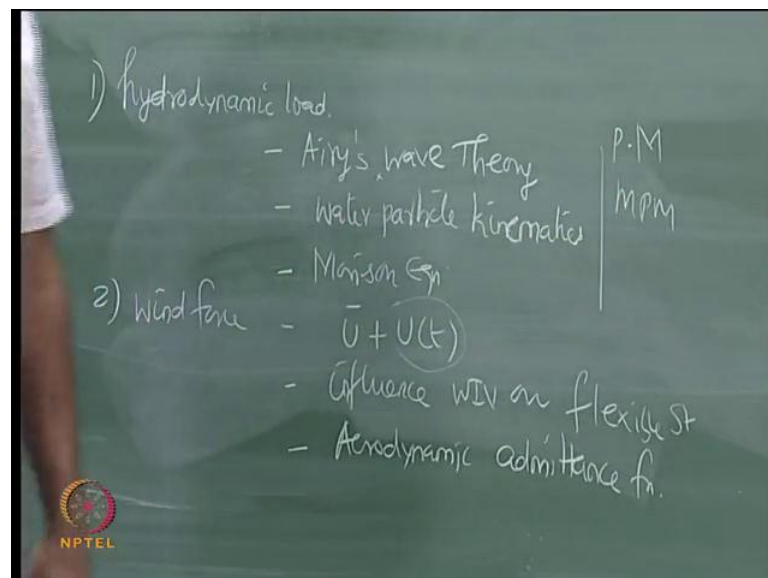 1) hydrodynamic load.
- Airy's wave Theory
- water particle kinematics
- Morison Eqn
P.M
MPM
2) Wind force - Ū + U(t)
- influence WIV on flexible St
- Aerodynamic admittance fn.
NPTEL